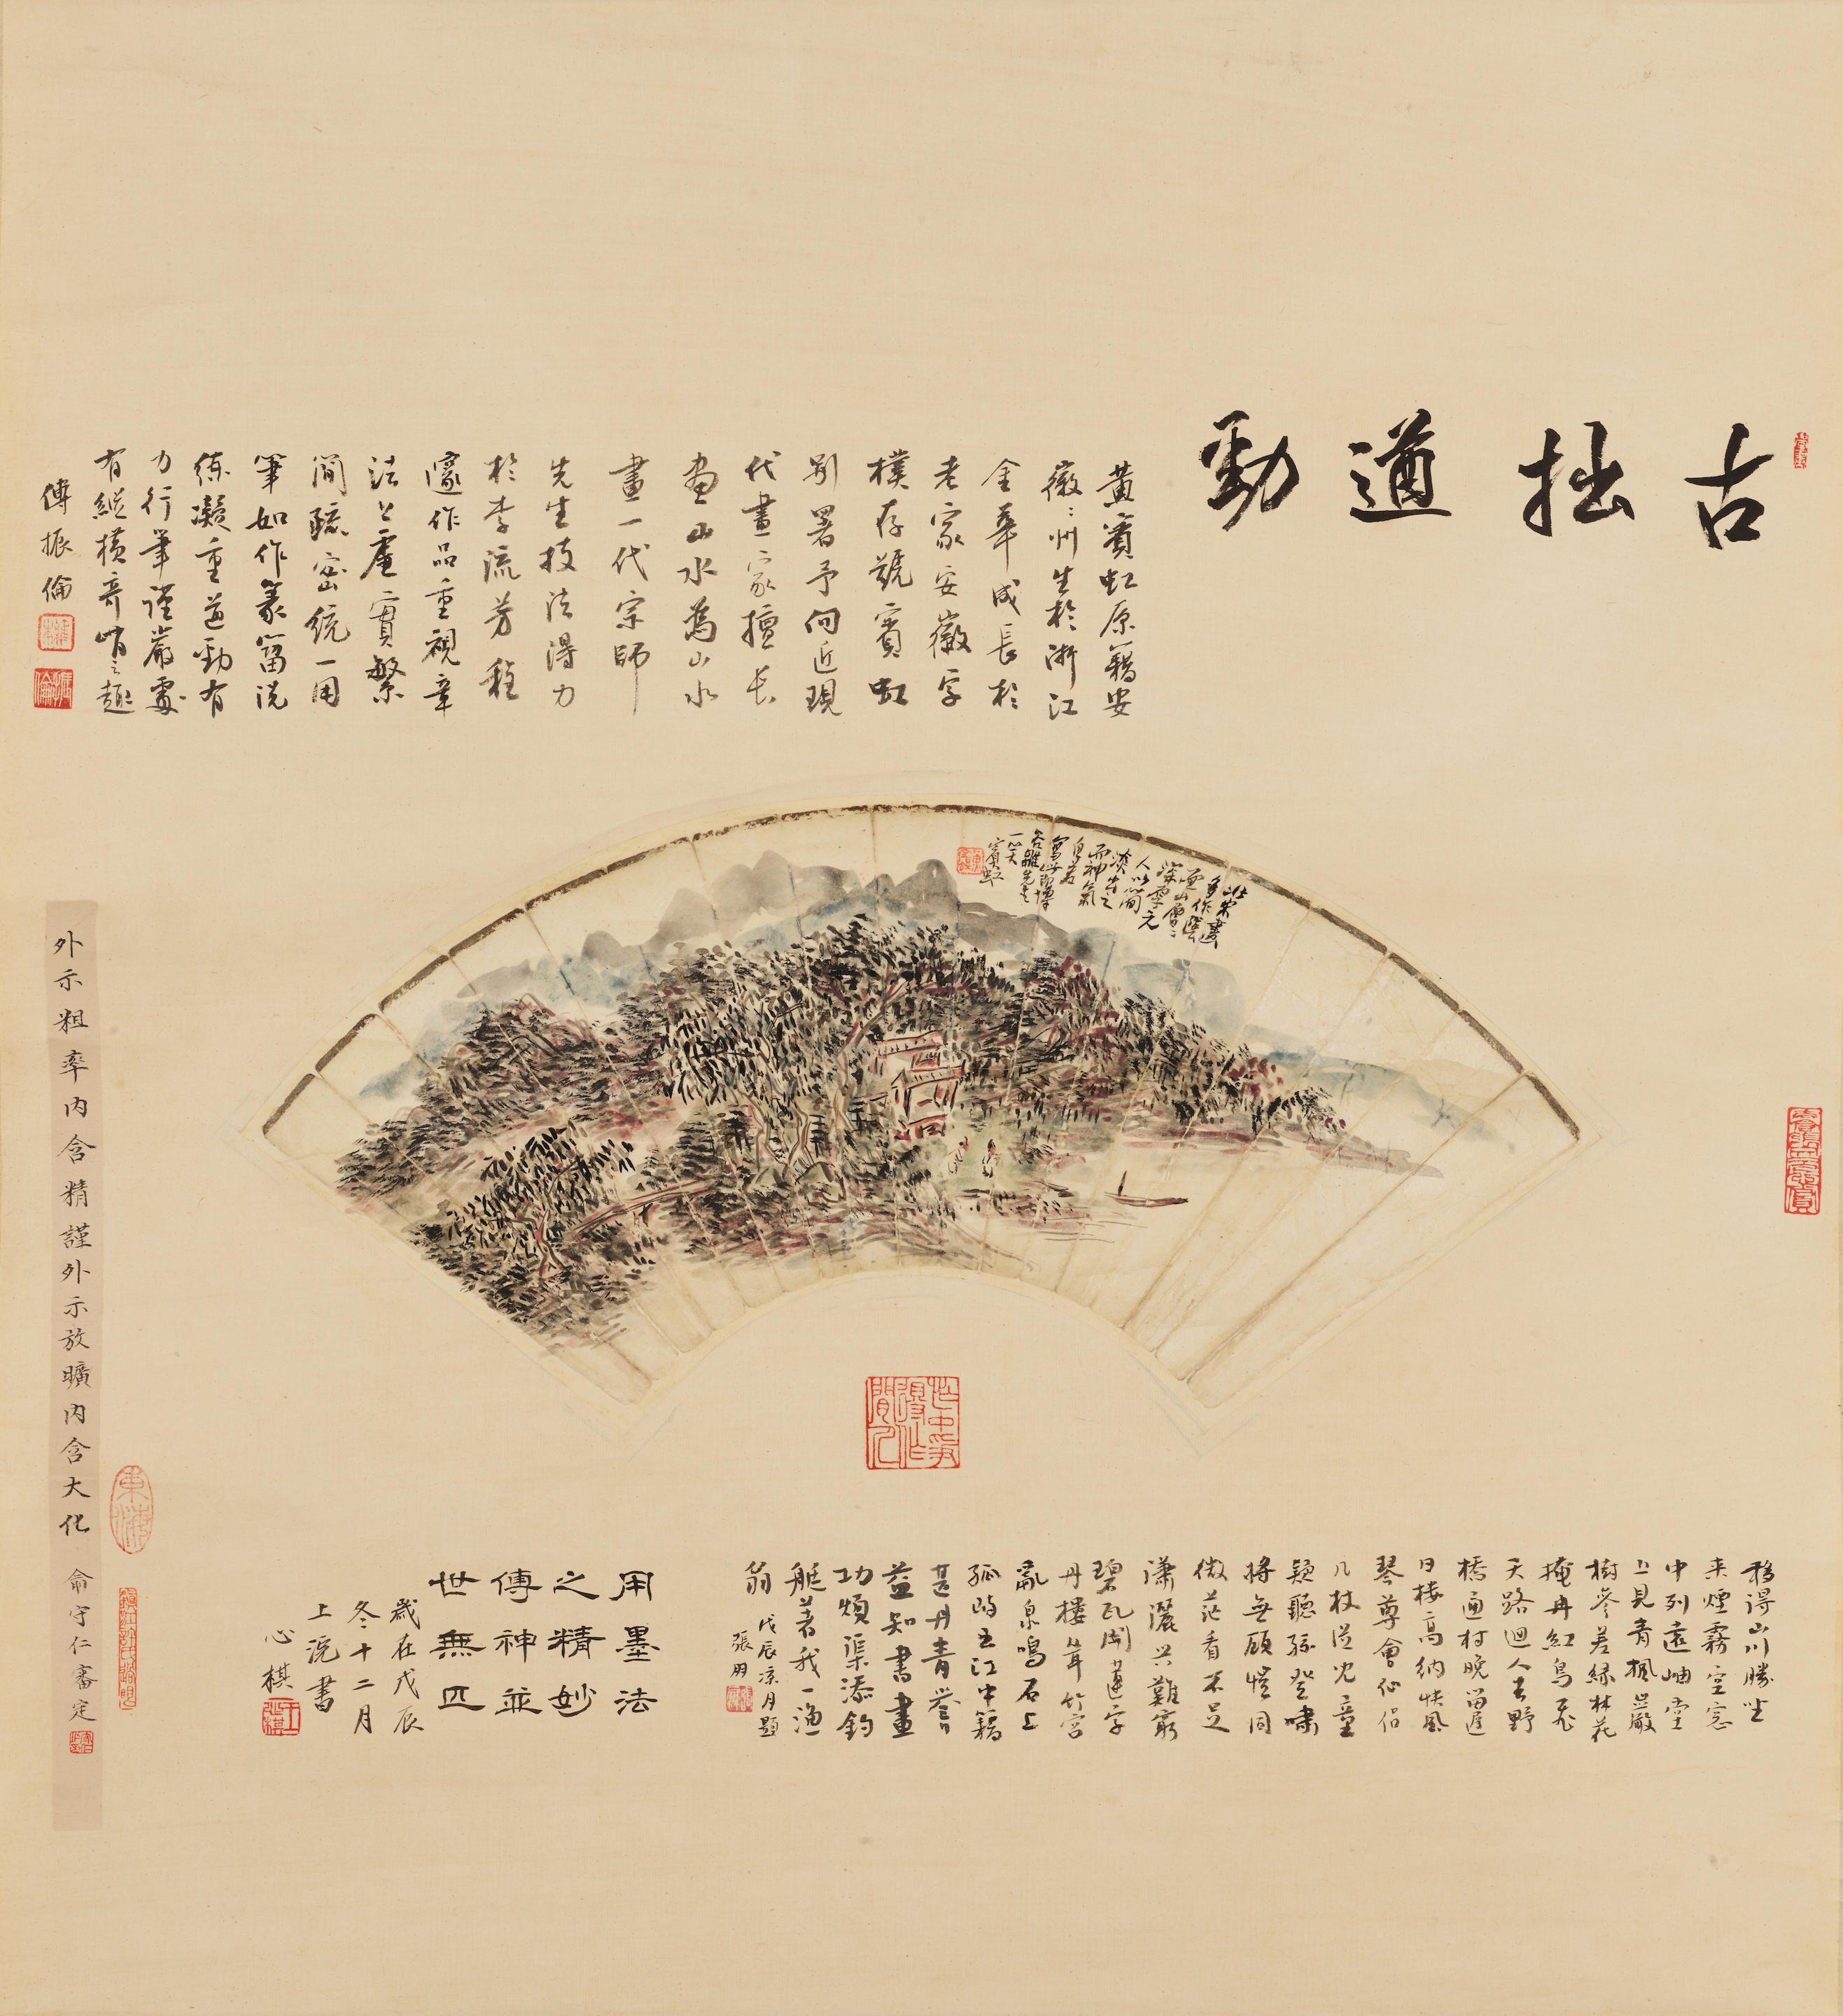 古拙遒勁
黃賓虹原籍安
徽徽州生於浙江
金華成長於
老家安徽字
樸存號賓虹
別署予向近現
代畫家擅長
畫山水為山水
畫一代宗師
先生技法得力
於李流芳程
邃作品重視章
法上虛實繁
簡疏密統一用
筆如作篆籀洗
練凝重遒勁有
力行筆謹嚴處
有縱橫奇峭之趣
傅振倫
北宋畫
多作陰
面山層層
深厚元
人以簡
淡出之
而神氣
自若
寫此
一笑
賓虹
移得山川勝坐
來煙霧空窓
中列遠岫堂
上見青楓巖
樹參差綠林花
掩冉紅鳥飛
天路迴人去野
橋通村晚留遲
日樓高納快風
琴尊會仙侶
几杖從兒童
疑聽孫登嘯
將無顧愷同
微茫看不足
瀟灑興難窮
碧瓦開蓮宇
丹樓聳竹宮
亂泉鳴石上
孤嶼立江中籍
甚丹青譽
益知書畫
功煩渠添釣
艇著我一漁
翁 戊辰涼月題
張朋
用墨法
之精妙
傳神並
世無匹
歲在戊辰
冬十二月
上浣書
心棋
外示粗率內含精謹外示放曠內含大化 俞守仁審定